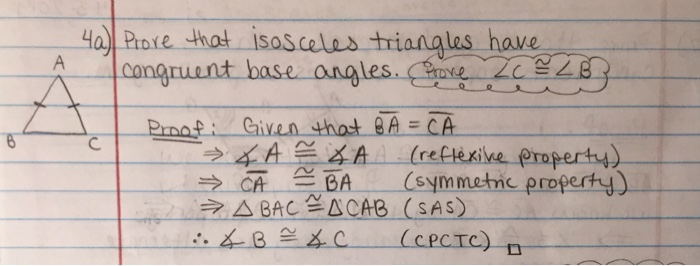 4a) Prove that isosceles triangles have
congruent base angles. Prove ∠C ≅ ∠B
A
B C
Proof: Given that B̅A̅ = C̅A̅
⇒ ∡A ≅ ∡A (reflexive property)
⇒ C̅A̅ ≅ B̅A̅ (symmetric property)
⇒ △BAC ≅ △CAB (SAS)
∴ ∡B ≅ ∡C (CPCTC) □